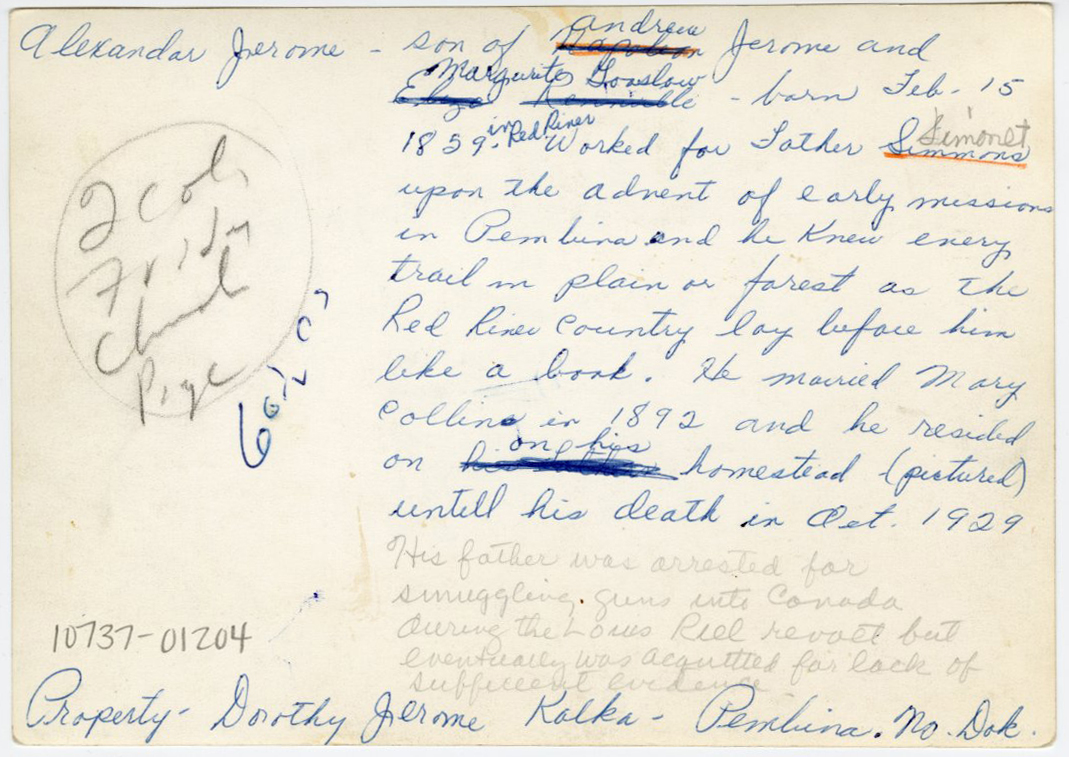 Alexandar Jerome - son of andrew Napoleon Jerome and
Margurite Gonslow
Eliza - born Feb. 15
1859. in Red River Worked for Father Simmons Simonet
upon the advent of early missions
in Pembina and he Knew every
trail in plain or forest as the
Red River Country lay before him
like a book. He married Mary
Collins in 1892 and he resided
on on his homestead (pictured)
untill his death in Oct. 1929
His father was arrested for
smuggling guns into Canada
during the Louis Riel revolt but
eventually was acquitted for lack of
sufficient evidence
2 col.
Church
Page
10737-01204
Property - Dorothy Jerome Kalka - Pembina. No. Dak.